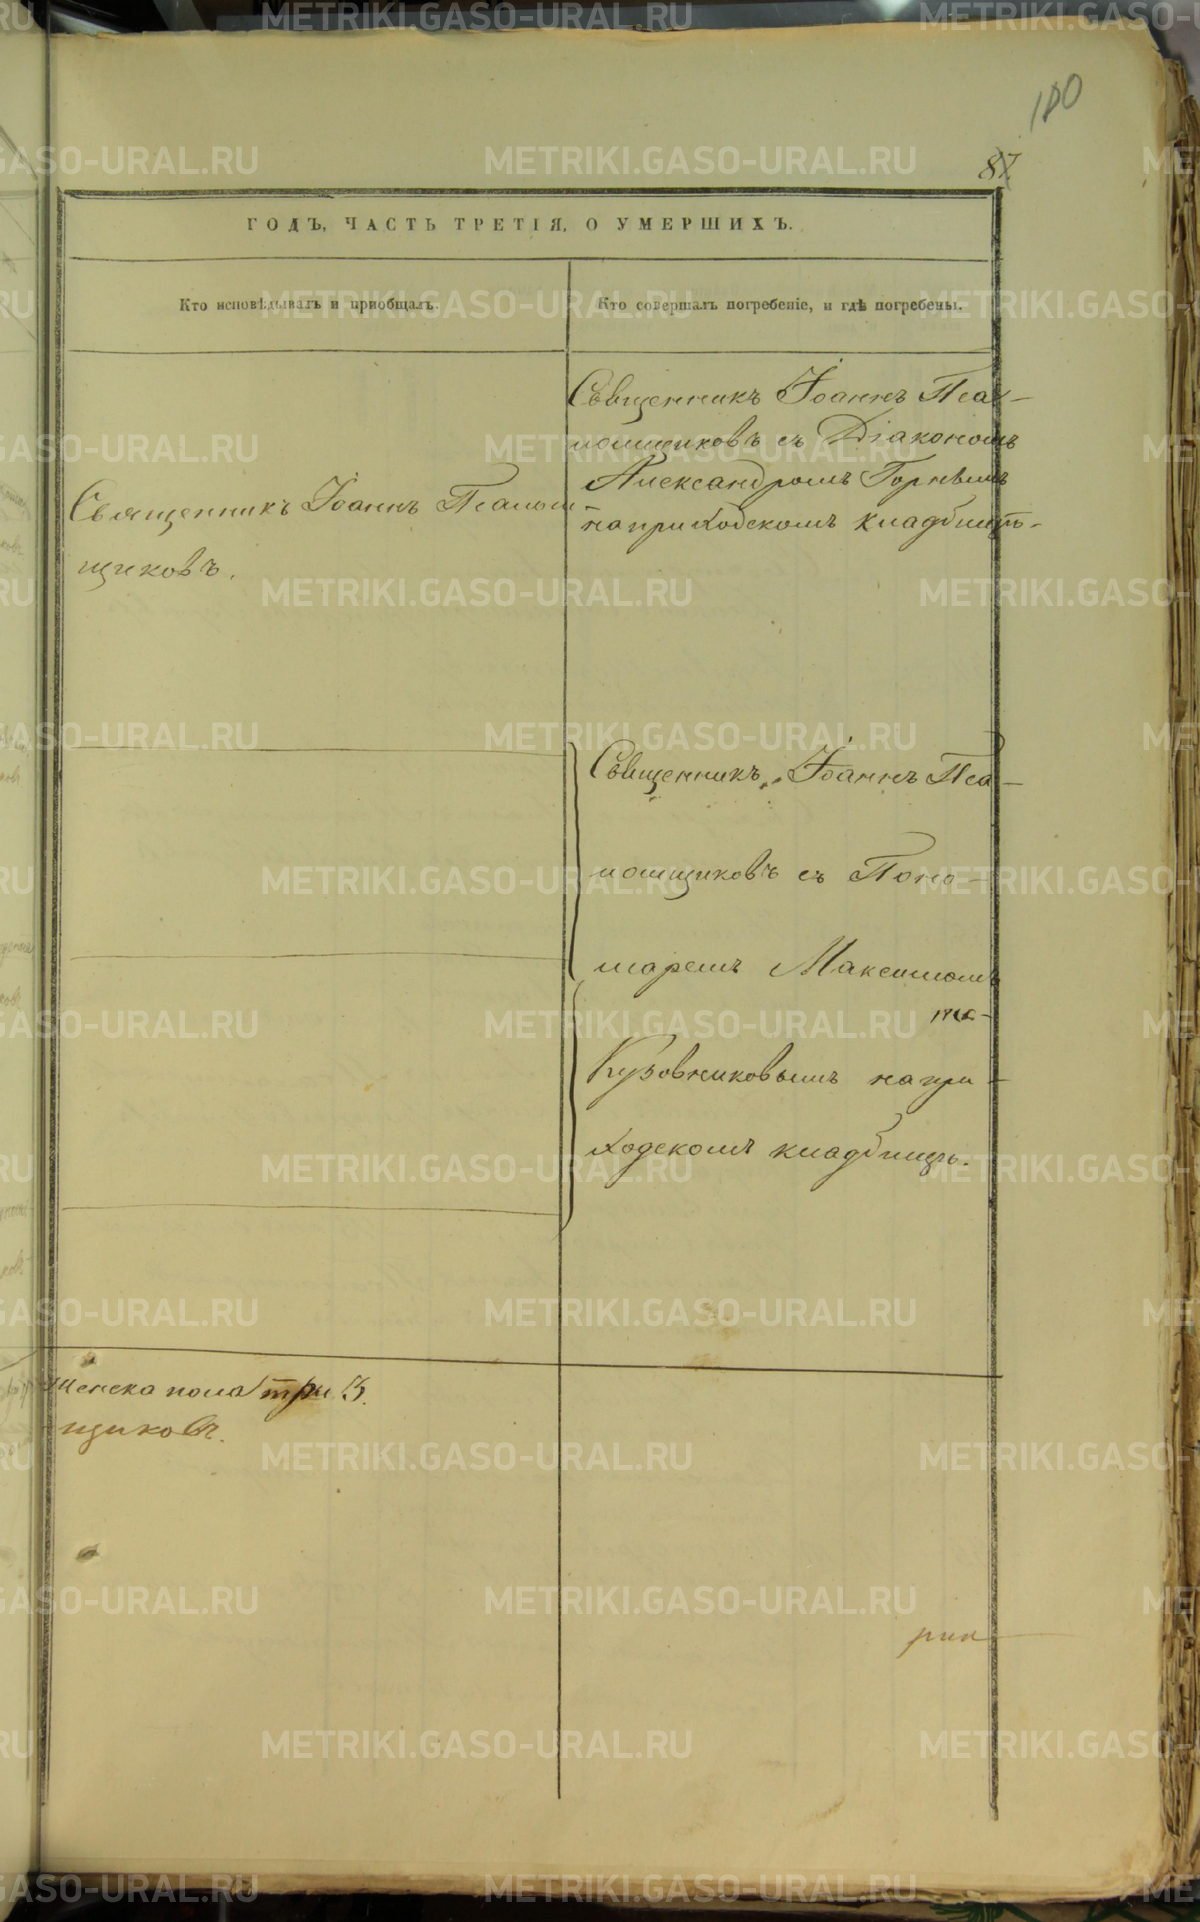 100
87
ГОДЪ, ЧАСТЬ ТРЕТІЯ, О УМЕРШИХЪ.
Кто исповѣдывалъ и приобщалъ.
Кто совершалъ погребеніе, и гдѣ погребены.
Священникъ Іоаннъ Псалом-
щиковъ.
Священникъ Іоаннъ Псал-
мощиковъ съ Діакономъ
Александромъ
на приходскомъ кладбищѣ.
Священникъ Іоаннъ Пса-
ломщиковъ съ Поно-
маремъ Максимомъ
Кузовниковымъ на при-
ходскомъ кладбищѣ.
женска пола три 3.
щиковъ.
METRIKI.GASO-URAL.RU